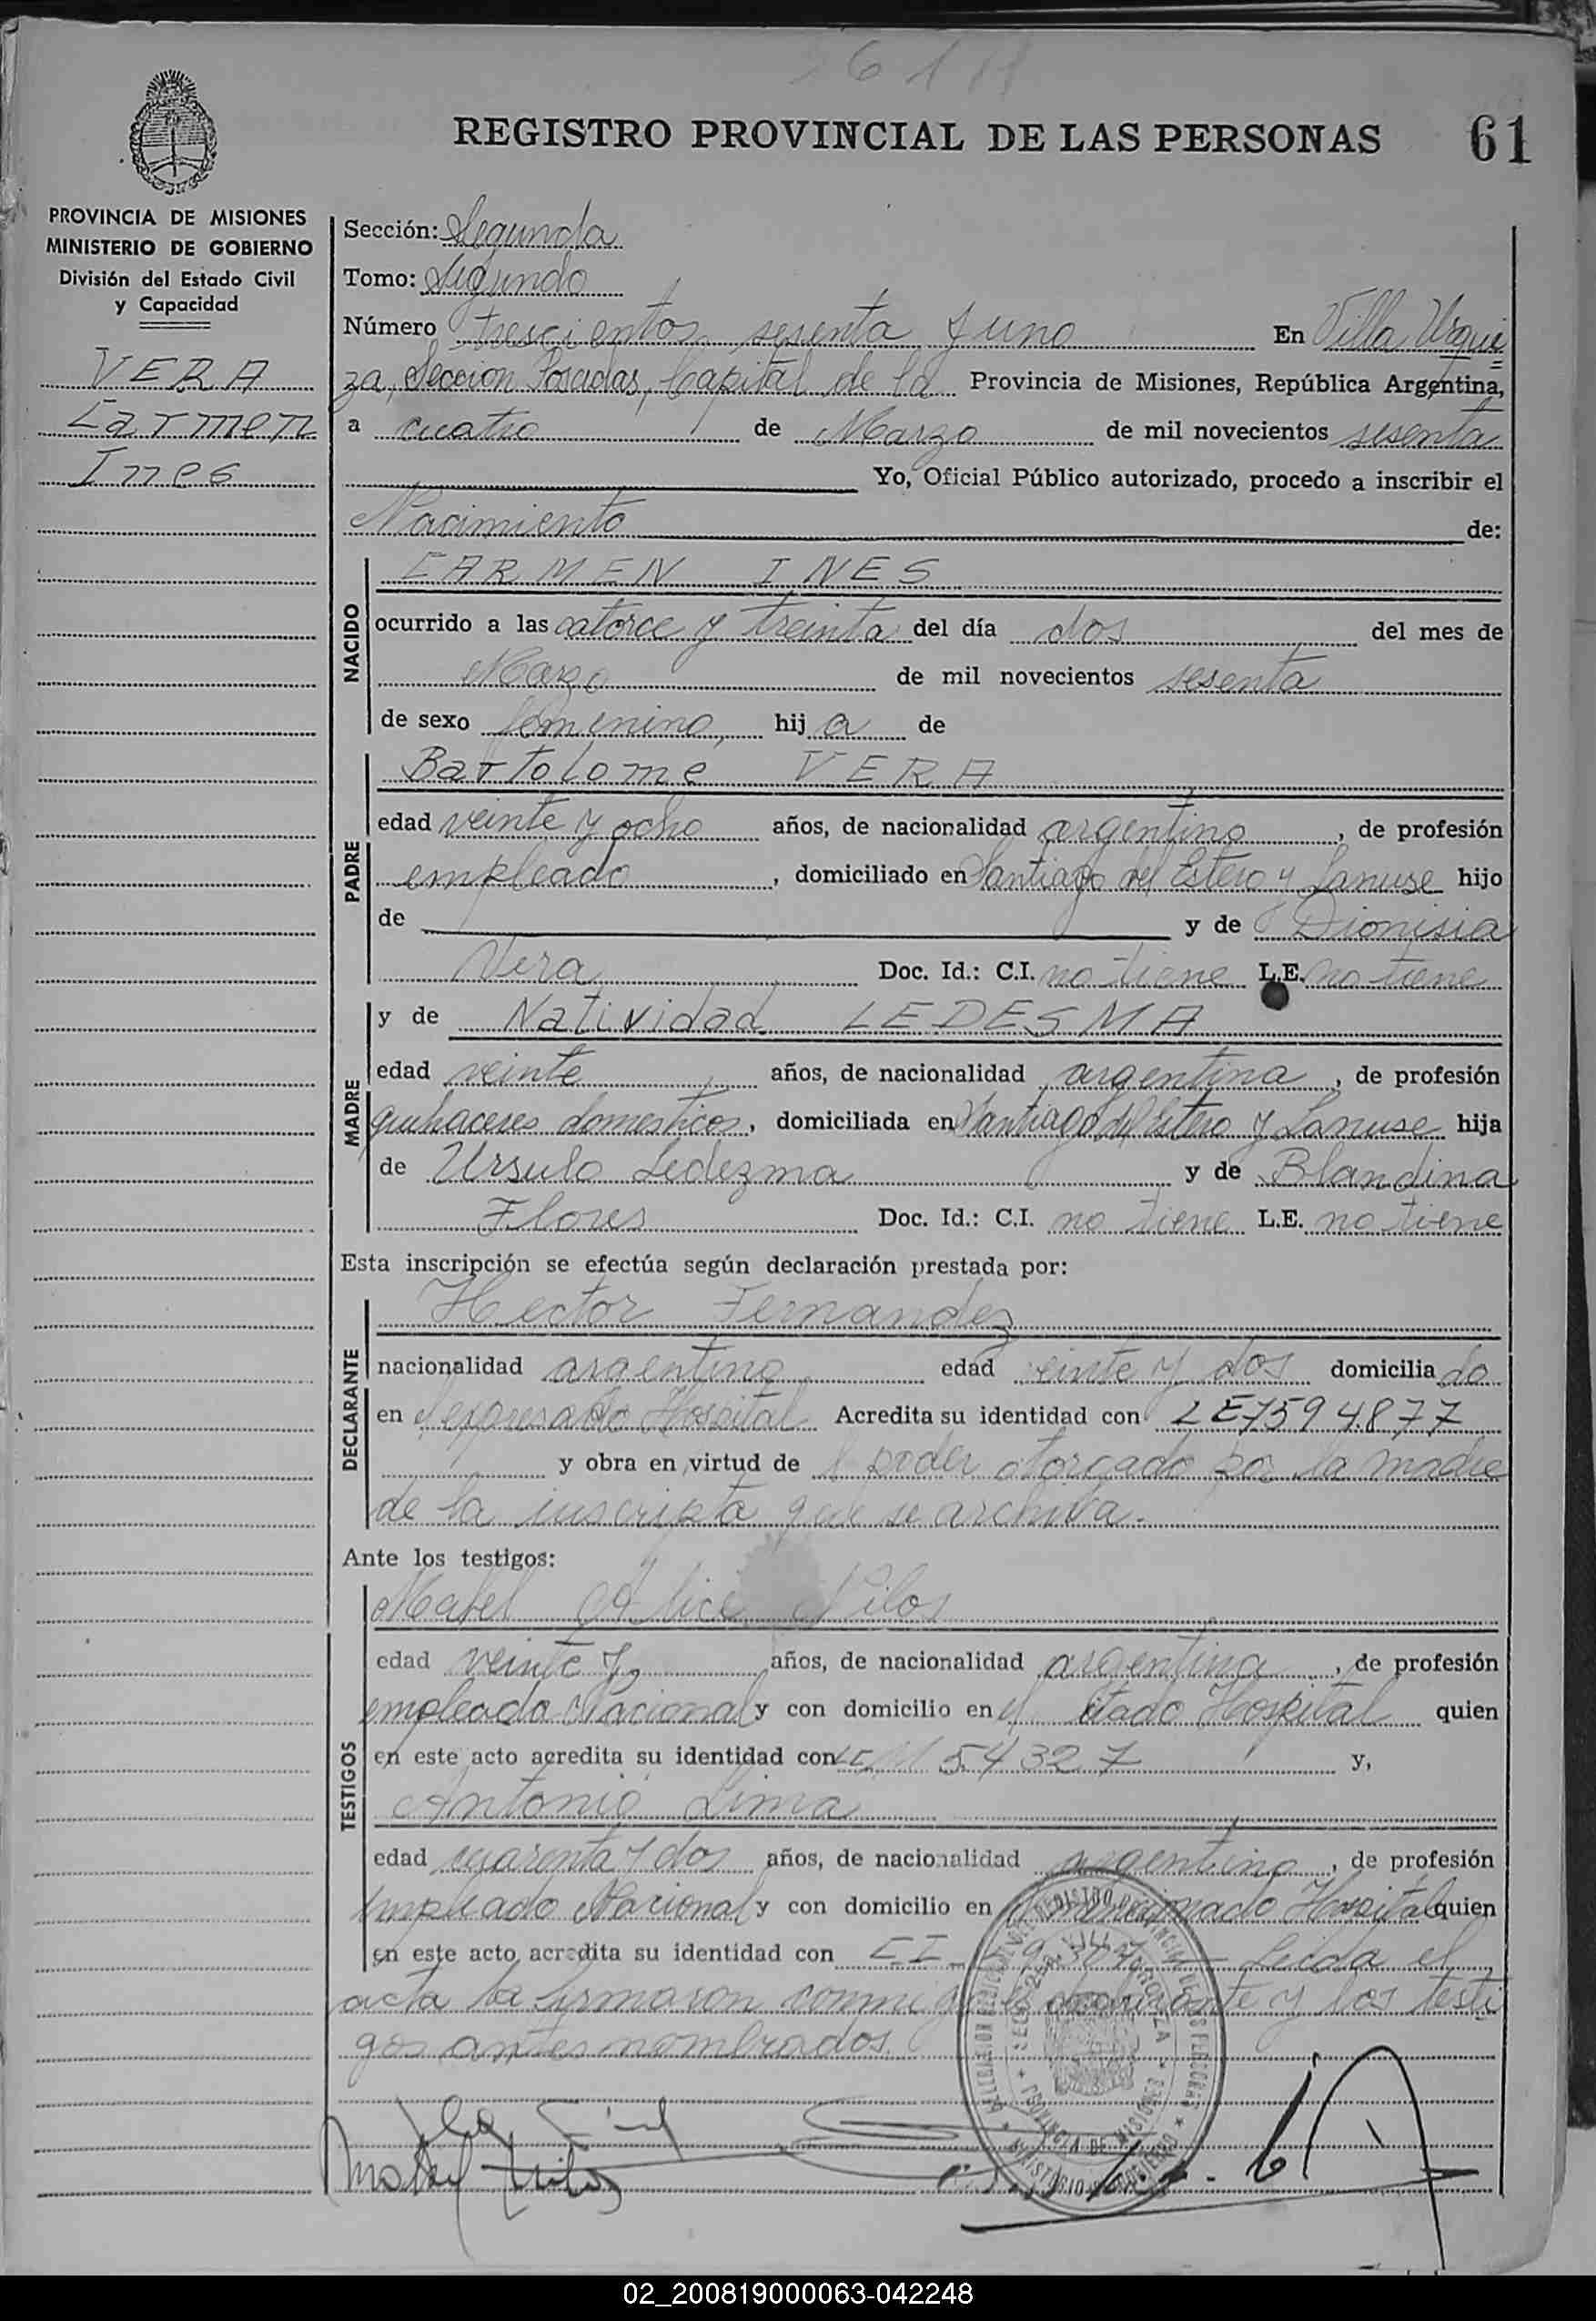 REGISTRO PROVINCIAL DE LAS PERSONAS 61
PROVINCIA DE MISIONES
MINISTERIO DE GOBIERNO
División del Estado Civil
y Capacidad
VERA
Carmen
Ines
Sección: Segunda
Tomo: Segundo
Número trescientos sesenta y uno En Villa Urqui
za, Seccion Posadas, Capital de la Provincia de Misiones, República Argentina,
a cuatro de Marzo de mil novecientos sesenta
Yo, Oficial Público autorizado, procedo a inscribir el
Nacimiento de:
NACIDO
CARMEN INES
ocurrido a las catorce y treinta del día dos del mes de
Marzo de mil novecientos sesenta
de sexo femenino, hij a de
PADRE
Bartolome VERA
edad veinte y ocho años, de nacionalidad argentino, de profesión
empleado, domiciliado en Santiago del Estero y Lanuse hijo
de y de Dionisia
Vera Doc. Id.: C.I. no tiene L.E. no tiene
MADRE
y de Natividad LEDESMA
edad veinte años, de nacionalidad argentina, de profesión
quehaceres domesticos, domiciliada en Santiago del Estero y Lanuse hija
de Ursulo Ledezma y de Blandina
Flores Doc. Id.: C.I. no tiene L.E. no tiene
Esta inscripción se efectúa según declaración prestada por:
DECLARANTE
Hector Fernandez
nacionalidad argentino edad veinte y dos domicilia do
en el expresado Hospital Acredita su identidad con LE 7594.877
y obra en virtud de l poder otorgado por la madre
de la inscripta que se archiva.
Ante los testigos:
TESTIGOS
Mabel Alice Nilos
edad veinte y años, de nacionalidad argentina, de profesión
empleada Nacional y con domicilio en el citado Hospital quien
en este acto acredita su identidad con 54327 y,
Antonio Lima
edad cuarenta y dos años, de nacionalidad argentino, de profesión
Empleado Nacional y con domicilio en Hospital quien
en este acto acredita su identidad con CI Leida el
acta la firmaron conmigo el declarante y los testi
gos antes nombrados.
02_200819000063-042248